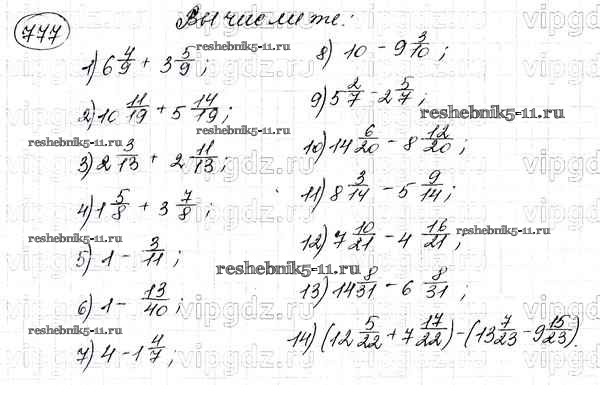 777 Вычислите:
1) 6 4/9 + 3 5/9;
2) 10 11/19 + 5 14/19;
3) 2 3/13 + 2 11/13;
4) 1 5/8 + 3 7/8;
5) 1 - 3/11;
6) 1 - 13/40;
7) 4 - 1 4/7;
8) 10 - 9 3/10;
9) 5 2/7 - 2 5/7;
10) 14 6/20 - 8 12/20;
11) 8 3/14 - 5 9/14;
12) 7 10/21 - 4 16/21;
13) 14 8/31 - 6 8/31;
14) (12 5/22 + 7 17/22) - (13 7/23 - 9 15/23).
reshebnik5-11.ru
reshebnik5-11.ru
reshebnik5-11.ru
reshebnik5-11.ru
reshebnik5-11.ru
reshebnik5-11.ru
reshebnik5-11.ru
reshebnik5-11.ru
vipgdz.ru
vipgdz.ru
vipgdz.ru